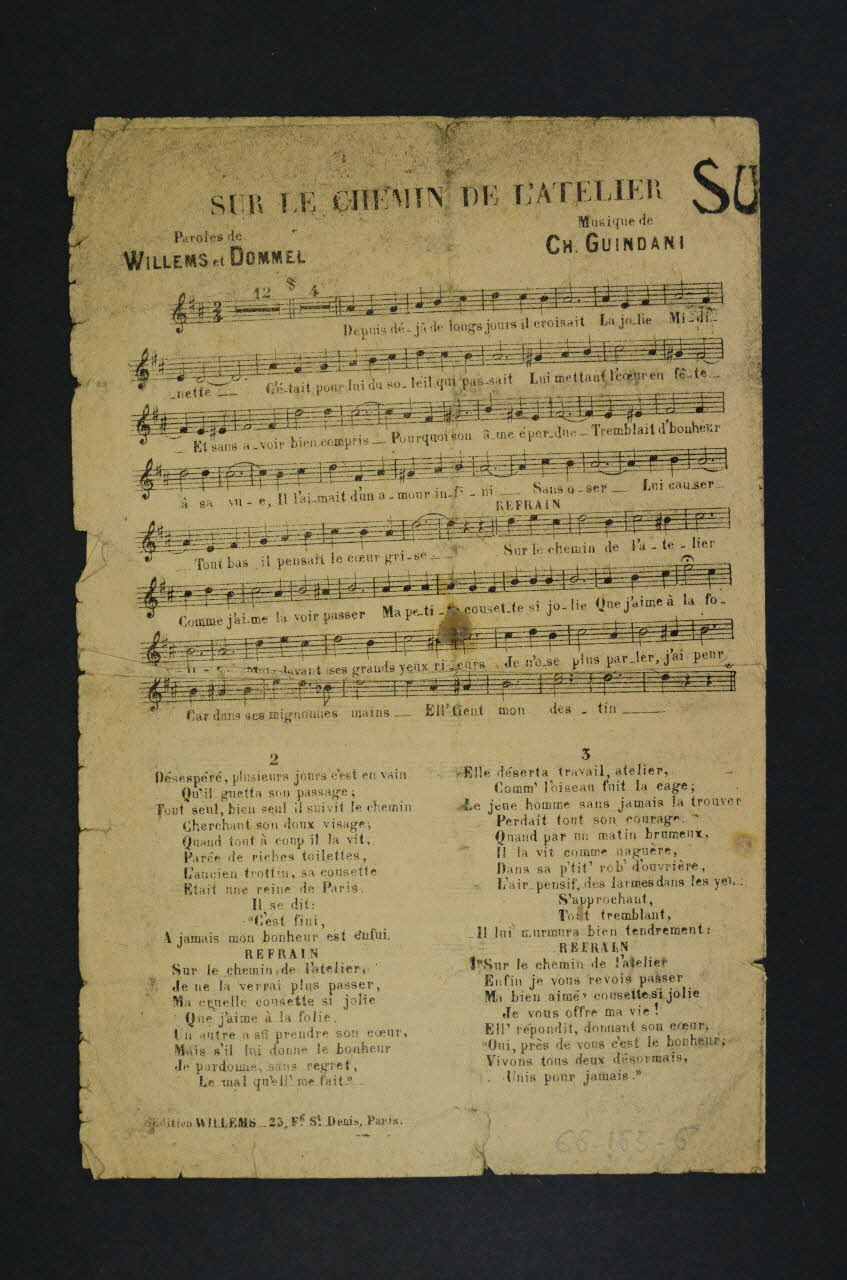 SUR LE CHEMIN DE L'ATELIER
SU
Paroles de
WILLEMS et DOMMEL
Musique de
CH. GUINDANI
12 4
Depuis dé_jà de longs jours il croisait La jo_lie Mi_di_
_nette_ C'é_tait pour lui du so_leil qui pas_sait Lui mettant l'cœur en fê_te_
_ Et sans a_voir bien compris_ Pourquoi son â_me éper_due_ Tremblait d'bonheur
à sa vu_e, Il l'ai_mait d'un a_mour in_fi_ni_ Sans o_ser_ Lui cau_ser_
REFRAIN
Tout bas il pensait le cœur gri_se_ Sur le chemin de l'a_te_lier
Comme j'ai_me la voir passer Ma pe_ti_te couset_te si jo_lie Que j'aime à la fo_
devant ses grands yeux ri_eurs Je n'o_se plus par_ler, j'ai peur
Car dans ses mignonnes mains_ Ell' tient mon des_tin_
2
Désespéré, plusieurs jours c'est en vain
Qu'il guetta son passage;
Tout seul, bien seul il suivit le chemin
Cherchant son doux visage;
Quand tout à coup il la vit,
Parée de riches toilettes,
L'ancien trottin, sa cousette
Etait une reine de Paris.
Il se dit:
"C'est fini,
A jamais mon bonheur est enfui.
REFRAIN
Sur le chemin de l'atelier,
Je ne la verrai plus passer,
Ma cruelle cousette si jolie
Que j'aime à la folie.
Un autre a su prendre son cœur,
Mais s'il lui donne le bonheur
Je pardonne, sans regret,
Le mal qu'ell' me fait."
3
Elle déserta travail, atelier,
Comm' l'oiseau fuit la cage;
Le jeue homme sans jamais la trouver
Perdait tout son courage.
Quand par un matin brumeux,
Il la vit comme naguère,
Dans sa p'tit' rob' d'ouvrière,
L'air pensif, des larmes dans les yeu
S'approchant,
Tout tremblant,
Il lui murmura bien tendrement:
REFRAIN
Sur le chemin de l'atelier
Enfin je vous revois passer
Ma bien aimé' cousette si jolie
Je vous offre ma vie!
Ell' répondit, donnant son cœur,
"Oui, près de vous c'est le bonheur,
Vivons tous deux désormais,
Unis pour jamais."
Edition WILLEMS_25, Fg St Denis, Paris.
66-165-6